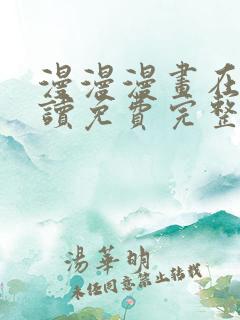 漫漫漫畫在
讀免費完整
湯華明
未经同意禁止转载